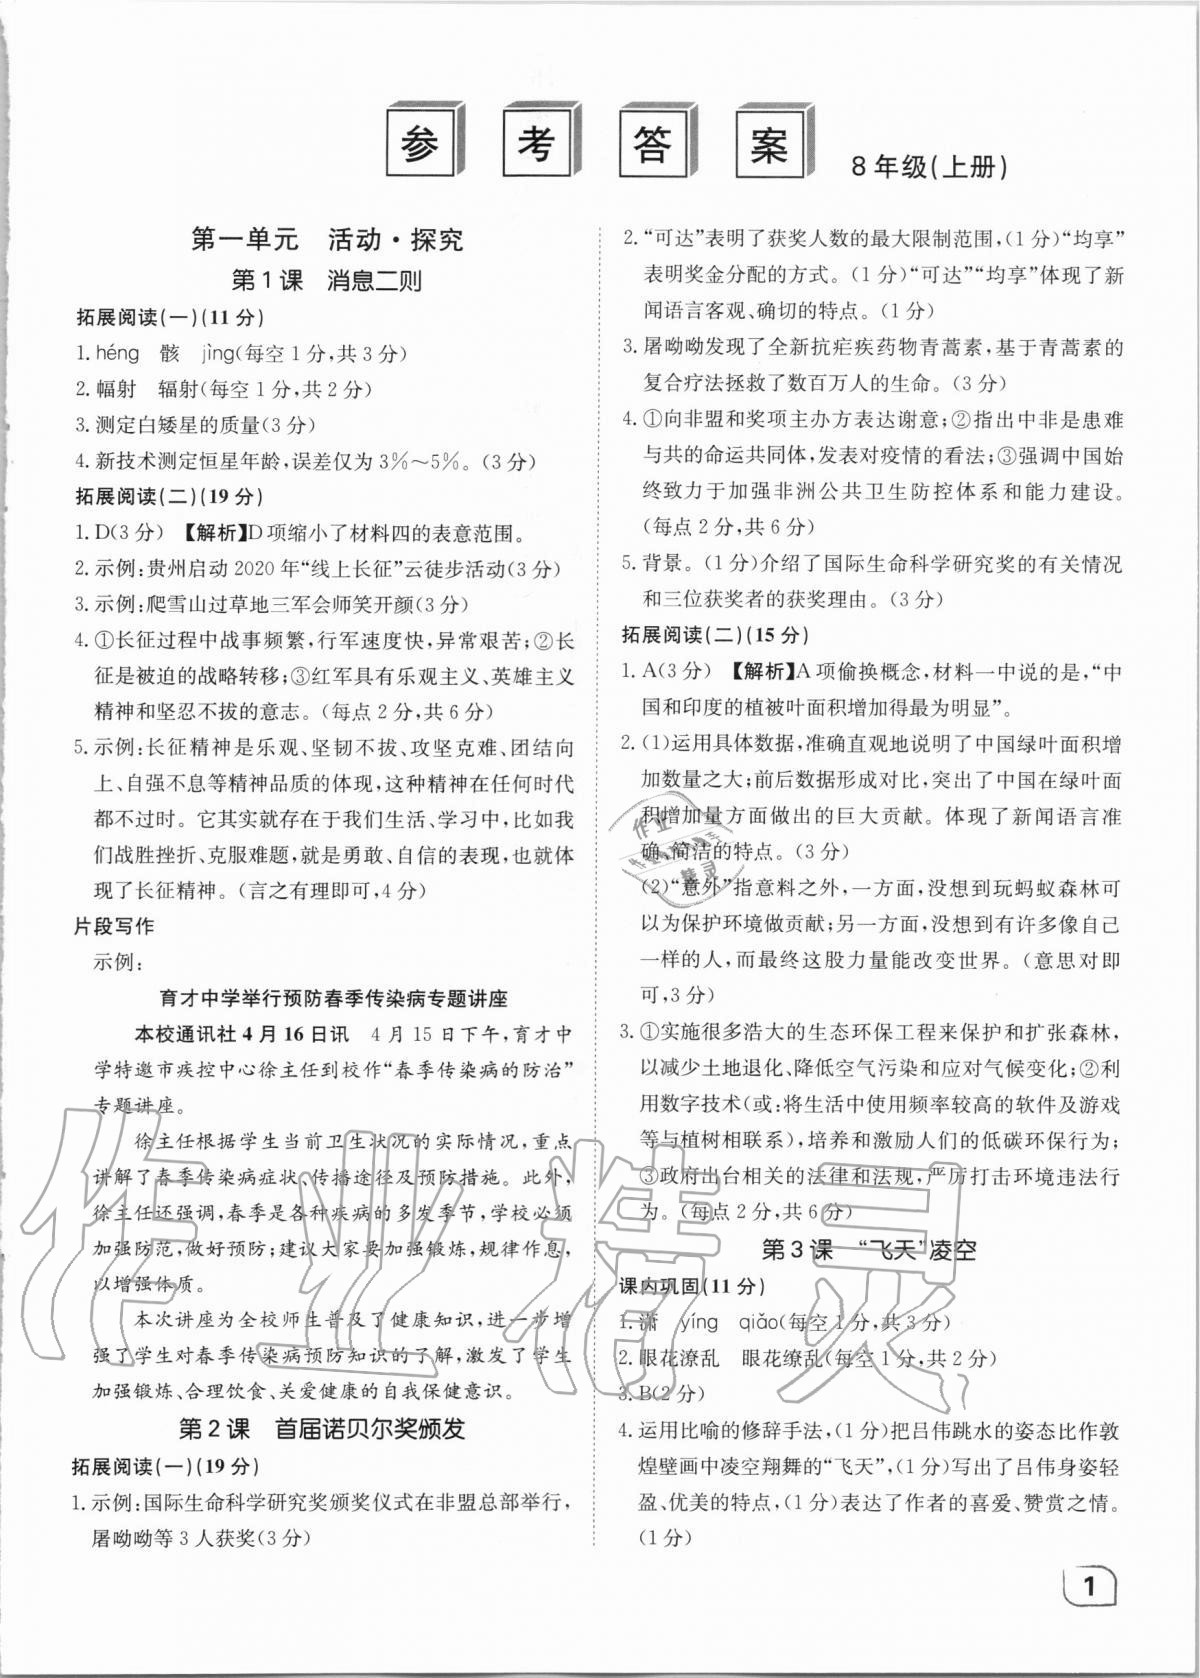 参考答案
8年级(上册)
第一单元 活动·探究
第1课 消息二则
拓展阅读(一)(11分)
1. héng 骸 jìng(每空1分,共3分)
2. 幅射 辐射(每空1分,共2分)
3. 测定白矮星的质量(3分)
4. 新技术测定恒星年龄,误差仅为3%～5%。(3分)
拓展阅读(二)(19分)
1. D(3分) 【解析】D项缩小了材料四的表意范围。
2. 示例:贵州启动2020年“线上长征”云徒步活动(3分)
3. 示例:爬雪山过草地三军会师笑开颜(3分)
4. ①长征过程中战事频繁,行军速度快,异常艰苦;②长
征是被迫的战略转移;③红军具有乐观主义、英雄主义
精神和坚忍不拔的意志。(每点2分,共6分)
5. 示例:长征精神是乐观、坚韧不拔、攻坚克难、团结向
上、自强不息等精神品质的体现,这种精神在任何时代
都不过时。它其实就存在于我们生活、学习中,比如我
们战胜挫折、克服难题,就是勇敢、自信的表现,也就体
现了长征精神。(言之有理即可,4分)
片段写作
示例:
育才中学举行预防春季传染病专题讲座
本校通讯社4月16日讯 4月15日下午,育才中
学特邀市疾控中心徐主任到校作“春季传染病的防治”
专题讲座。
徐主任根据学生当前卫生状况的实际情况,重点
讲解了春季传染病症状、传播途径及预防措施。此外,
徐主任还强调,春季是各种疾病的多发季节,学校必须
加强防范,做好预防;建议大家要加强锻炼,规律作息,
以增强体质。
本次讲座为全校师生普及了健康知识,进一步增
强了学生对春季传染病预防知识的了解,激发了学生
加强锻炼、合理饮食、关爱健康的自我保健意识。
第2课 首届诺贝尔奖颁发
拓展阅读(一)(19分)
1. 示例:国际生命科学研究奖颁奖仪式在非盟总部举行,
屠呦呦等3人获奖(3分)
2. “可达”表明了获奖人数的最大限制范围,(1分)“均享”
表明奖金分配的方式。(1分)“可达”“均享”体现了新
闻语言客观、确切的特点。(1分)
3. 屠呦呦发现了全新抗疟疾药物青蒿素,基于青蒿素的
复合疗法拯救了数百万人的生命。(3分)
4. ①向非盟和奖项主办方表达谢意;②指出中非是患难
与共的命运共同体,发表对疫情的看法;③强调中国始
终致力于加强非洲公共卫生防控体系和能力建设。
(每点2分,共6分)
5. 背景。(1分)介绍了国际生命科学研究奖的有关情况
和三位获奖者的获奖理由。(3分)
拓展阅读(二)(15分)
1. A(3分) 【解析】A项偷换概念,材料一中说的是,“中
国和印度的植被叶面积增加得最为明显”。
2. (1)运用具体数据,准确直观地说明了中国绿叶面积增
加数量之大;前后数据形成对比,突出了中国在绿叶面
积增加量方面做出的巨大贡献。体现了新闻语言准
确,简洁的特点。(3分)
(2)“意外”指意料之外,一方面,没想到玩蚂蚁森林可
以为保护环境做贡献;另一方面,没想到有许多像自己
一样的人,而最终这股力量能改变世界。(意思对即
可,3分)
3. ①实施很多浩大的生态环保工程来保护和扩张森林,
以减少土地退化、降低空气污染和应对气候变化;②利
用数字技术(或:将生活中使用频率较高的软件及游戏
等与植树相联系),培养和激励人们的低碳环保行为;
③政府出台相关的法律和法规,严厉打击环境违法行
为。(每点2分,共6分)
第3课 “飞天”凌空
课内巩固(11分)
1. 潇 yíng qiǎo(每空1分,共3分)
2. 眼花潦乱 眼花缭乱(每空1分,共2分)
3. B(2分)
4. 运用比喻的修辞手法,(1分)把吕伟跳水的姿态比作敦
煌壁画中凌空翔舞的“飞天”,(1分)写出了吕伟身姿轻
盈、优美的特点,(1分)表达了作者的喜爱、赞赏之情。
(1分)
1
作业精灵
作业
精灵